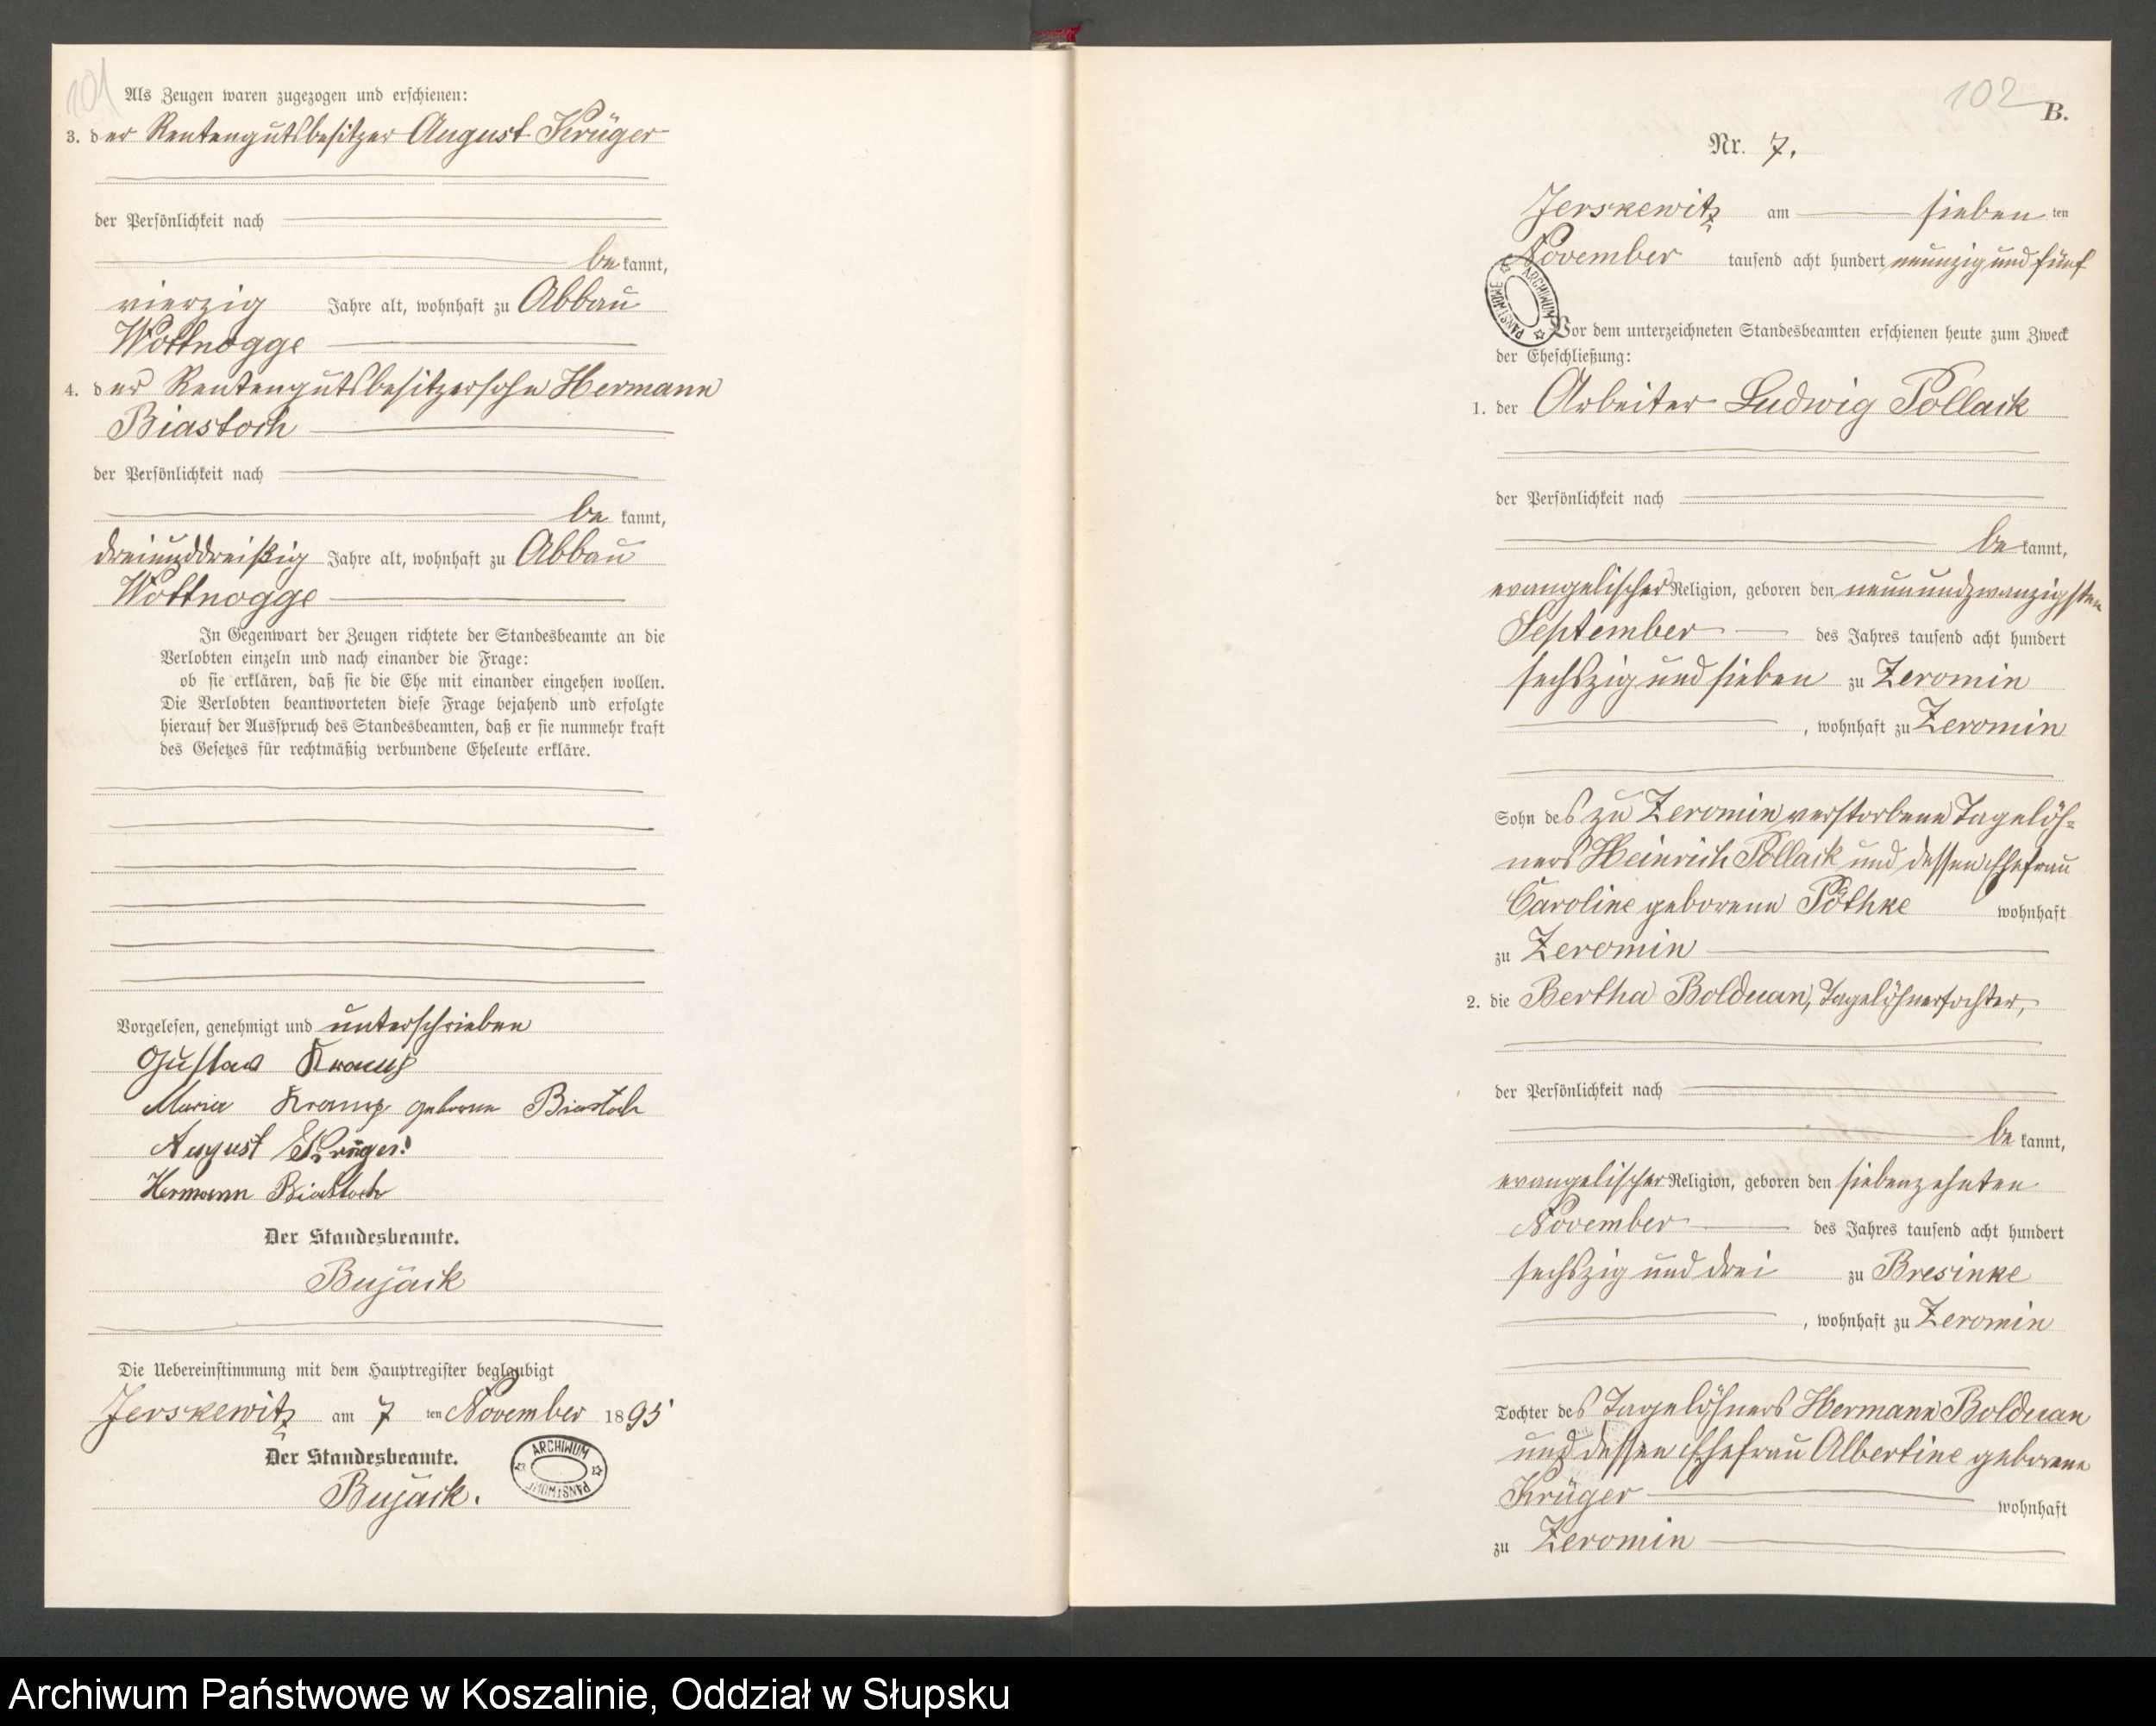 101
Als Zeugen waren zugezogen und erschienen:
3. der Rentengutsbesitzer August Krüger
der Persönlichkeit nach
be kannt,
vierzig Jahre alt, wohnhaft zu Abbau
Wottnogge
4. der Rentengutsbesitzersohn Hermann
Biastoch
der Persönlichkeit nach
be kannt,
dreiunddreißig Jahre alt, wohnhaft zu Abbau
Wottnogge
In Gegenwart der Zeugen richtete der Standesbeamte an die
Verlobten einzeln und nach einander die Frage:
ob sie erklären, daß sie die Ehe mit einander eingehen wollen.
Die Verlobten beantworteten diese Frage bejahend und erfolgte
hierauf der Ausspruch des Standesbeamten, daß er sie nunmehr kraft
des Gesetzes für rechtmäßig verbundene Eheleute erkläre.
Vorgelesen, genehmigt und unterschrieben
Gustav
Maria geborene Biastoch
August Krüger
Hermann Biastoch
Der Standesbeamte.
Bujack
Die Uebereinstimmung mit dem Hauptregister beglaubigt
Jerskewitz am 7 ten November 1895
Der Standesbeamte.
Bujack.
ARCHIWUM PAŃSTWOWE
102
B.
Nr. 7.
Jerskewitz am sieben ten
November tausend acht hundert neunzig und fünf
ARCHIWUM PAŃSTWOWE
Vor dem unterzeichneten Standesbeamten erschienen heute zum Zweck
der Eheschließung:
1. der Arbeiter Ludwig Pollack
der Persönlichkeit nach
be kannt,
evangelischer Religion, geboren den neunundzwanzigsten
September des Jahres tausend acht hundert
sechszig und sieben zu Zeromin
, wohnhaft zu Zeromin
Sohn des zu Zeromin verstorbene Tagelöh-
ners Heinrich Pollack und dessen Ehefrau
Caroline geborene Pöthke wohnhaft
zu Zeromin
2. die Bertha Bolduan, Tagelöhnertochter,
der Persönlichkeit nach
be kannt,
evangelischer Religion, geboren den siebenzehnten
November des Jahres tausend acht hundert
sechszig und drei zu Bresinke
, wohnhaft zu Zeromin
Tochter des Tagelöhners Hermann Bolduan
und dessen Ehefrau Albertine geborene
Krüger wohnhaft
zu Zeromin
Archiwum Państwowe w Koszalinie, Oddział w Słupsku